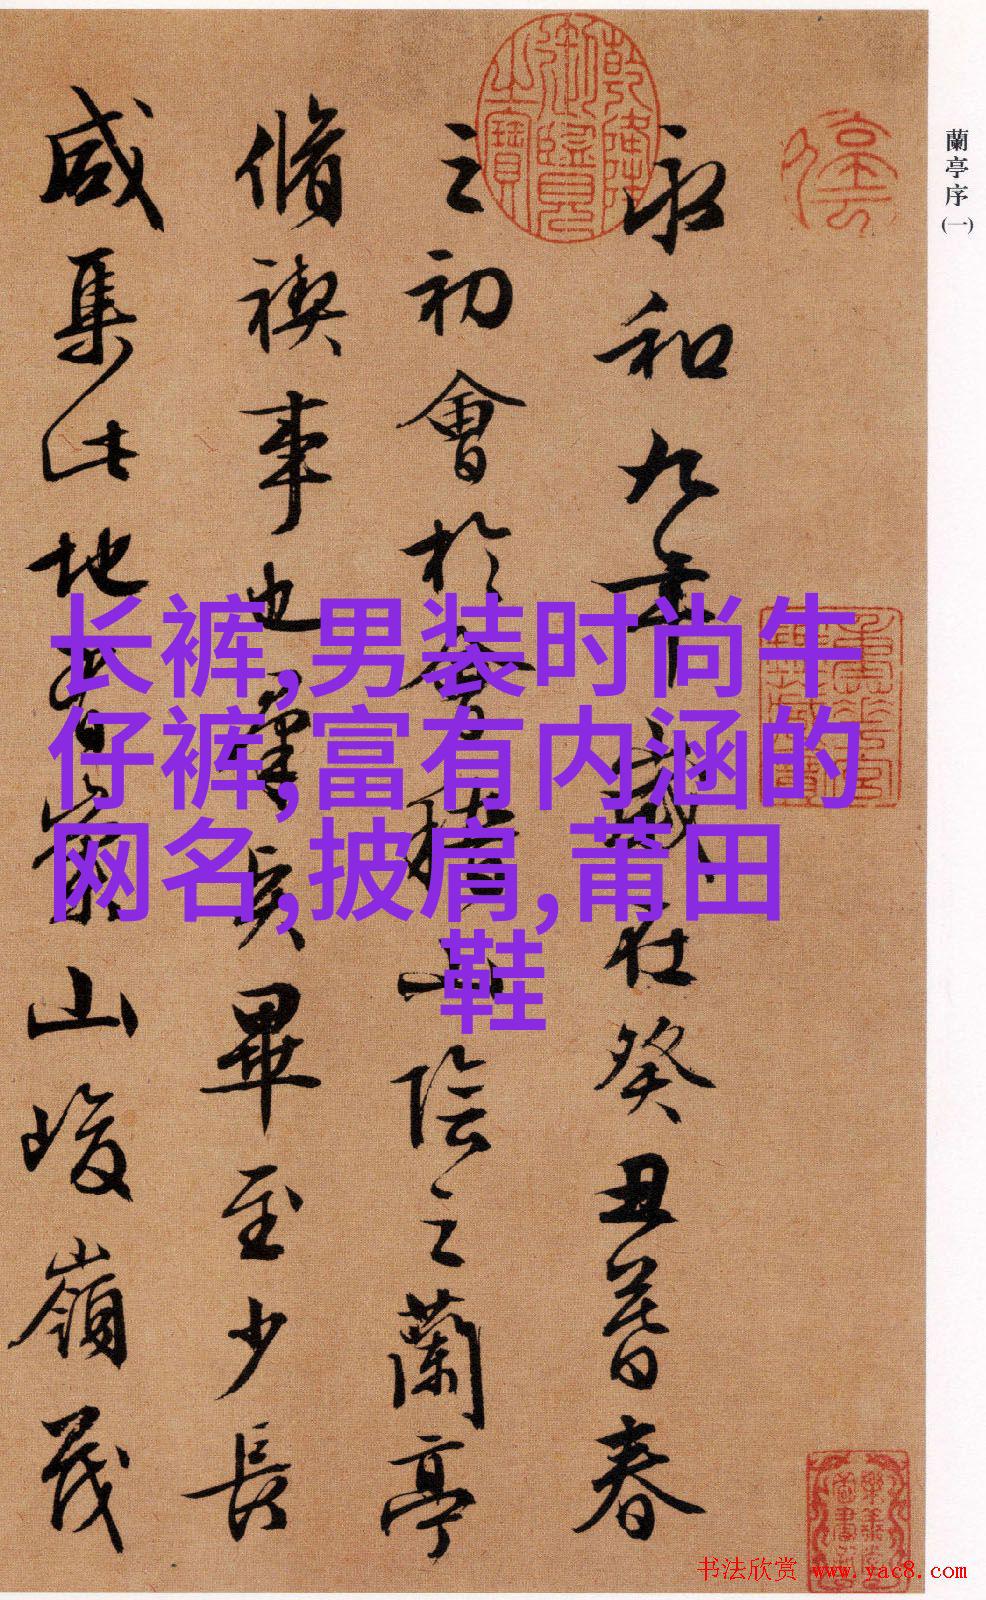 蘭亭序(一)
永和九年歲在癸丑暮春
之初會於會稽山陰之蘭亭
脩禊事也羣賢畢至少長
咸集此地有崇山峻嶺茂
乾隆御覽之寶
长裤,男装时尚牛
仔裤,富有内涵的
网名,披肩,莆田
鞋
书法欣赏 www.yac8.com